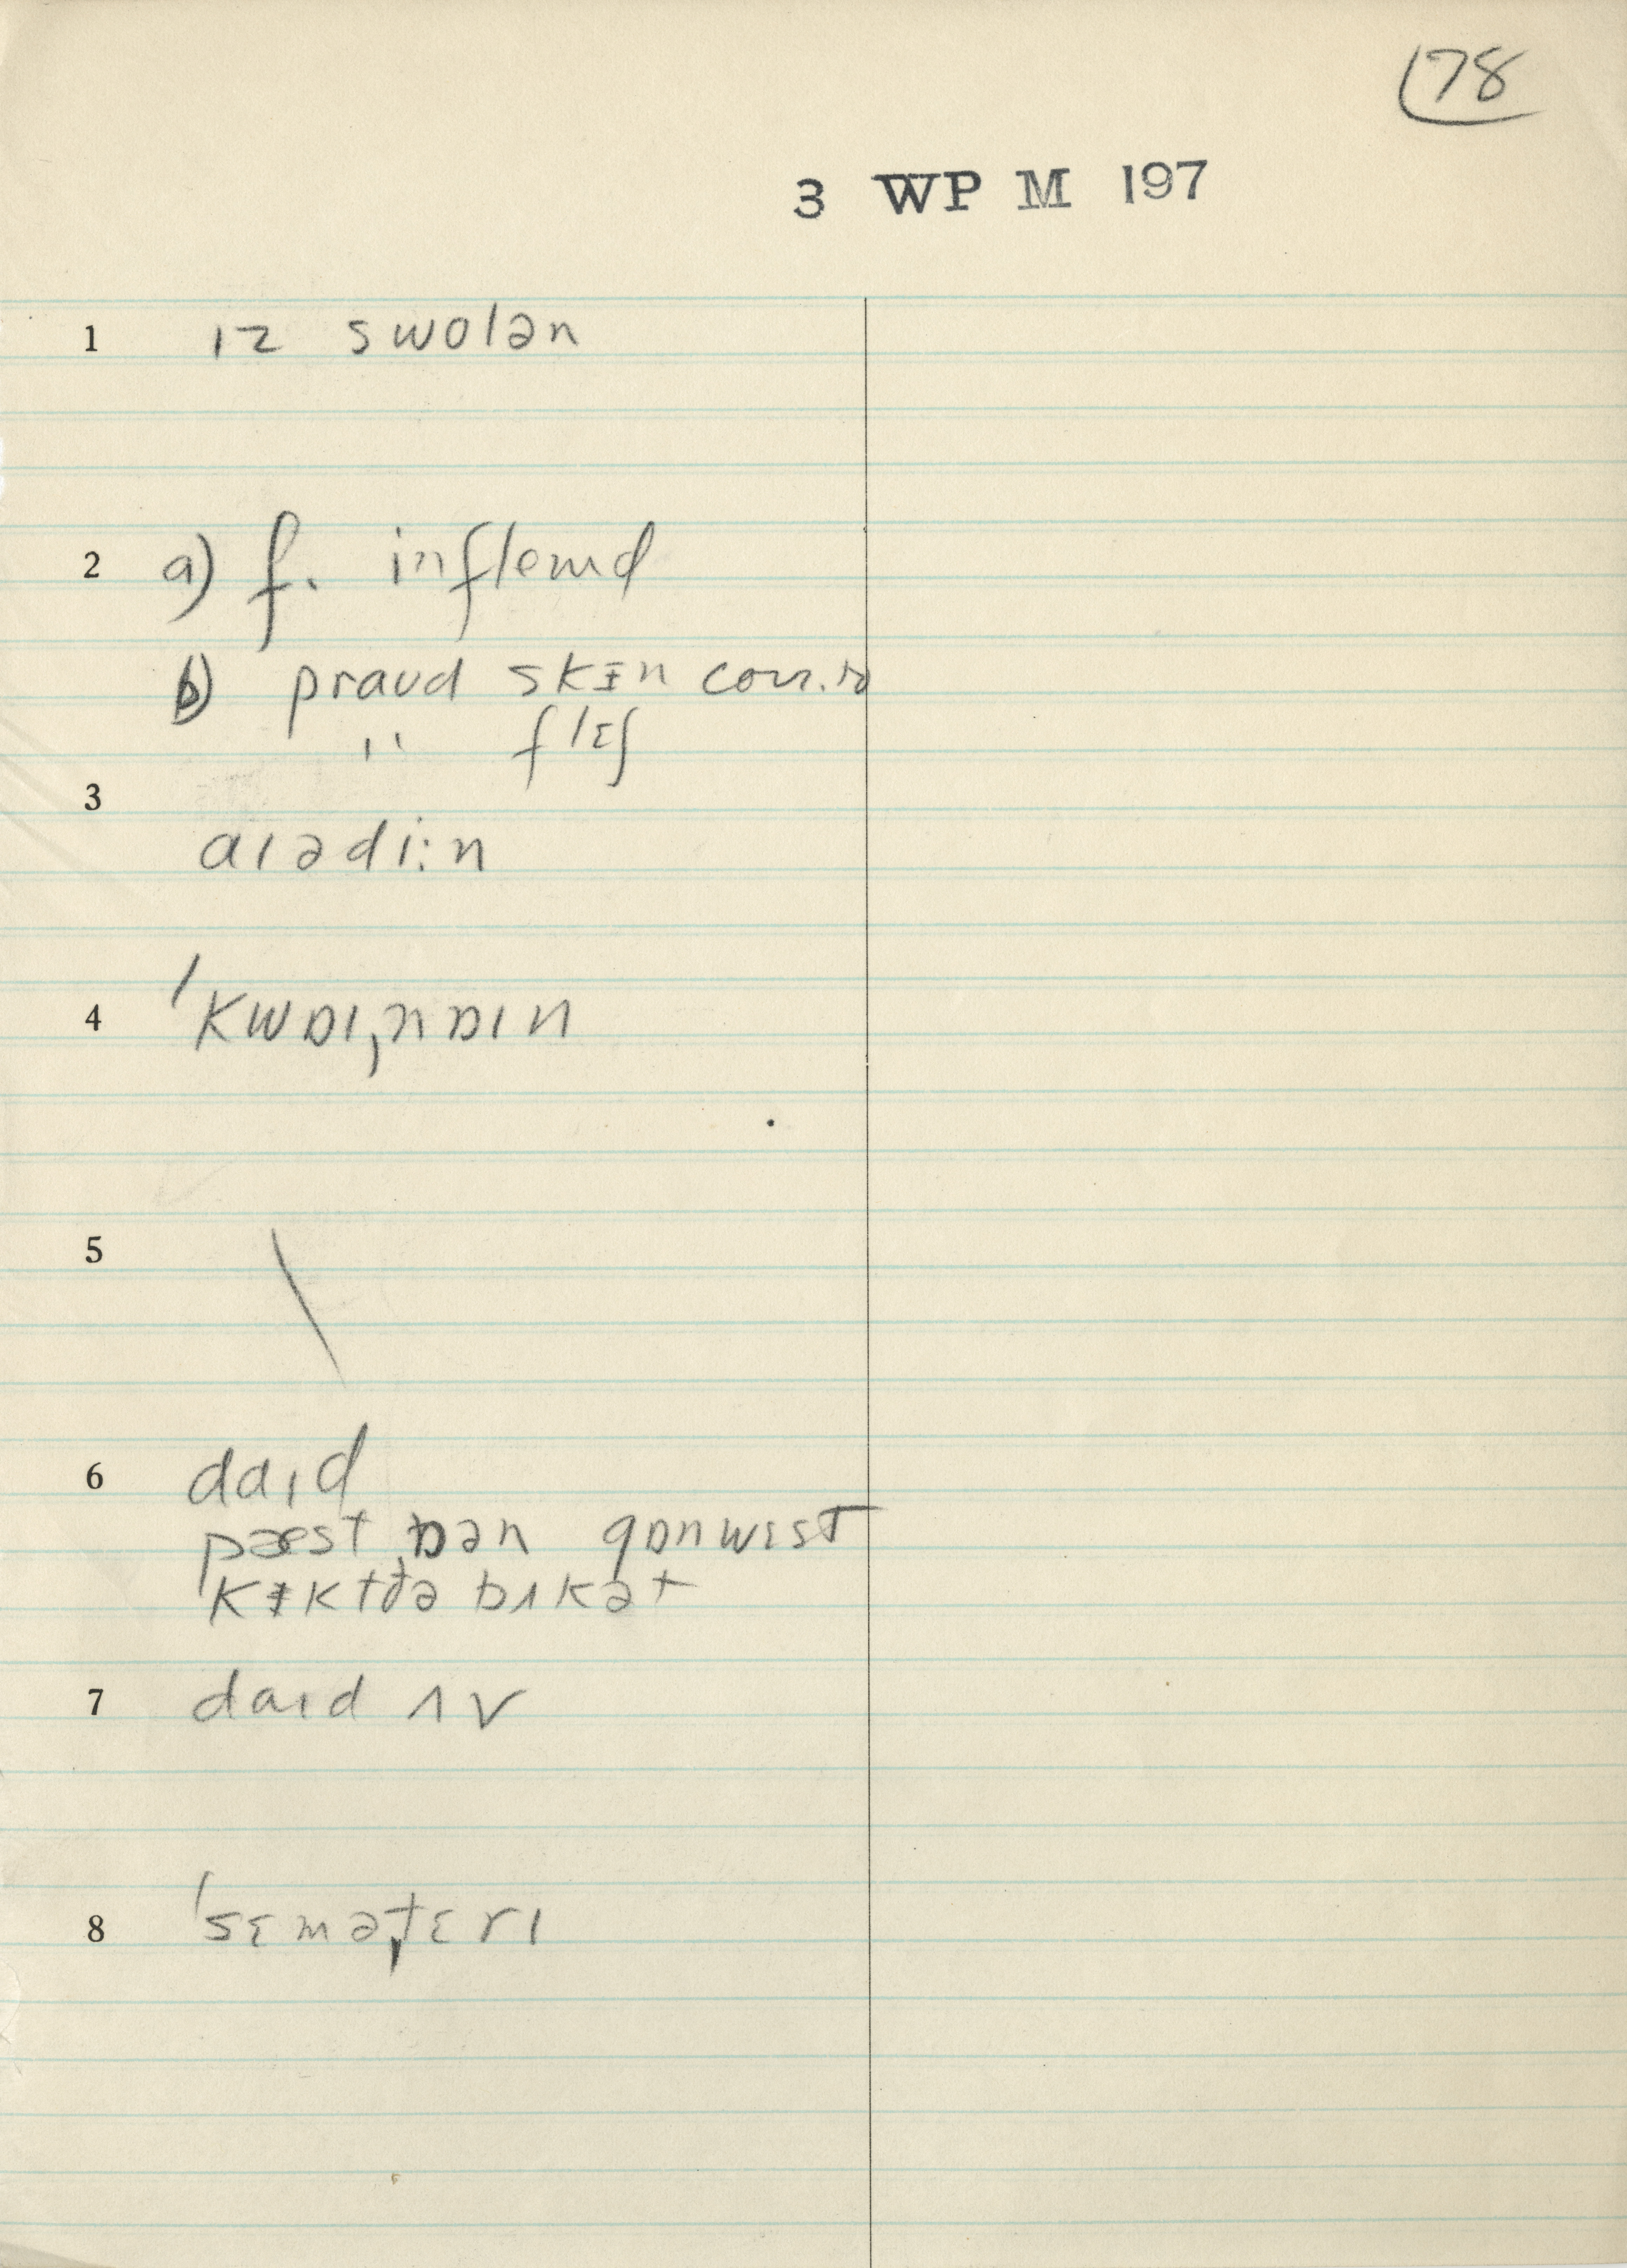 78
3 WP M 197
1 ɪz swolən
2 a) f. inflemd
b) praʊd skɪn corr. to
" flɛʃ
3 aɪədi:n
4 ˈkwɒɪˌnɒɪn
5 \
6 daɪd
pæst ɒən gɒnwɛst
kɪkt ðə bʌkət
7 daɪd ʌv
8 ˈsɛməˌtɛrɪ